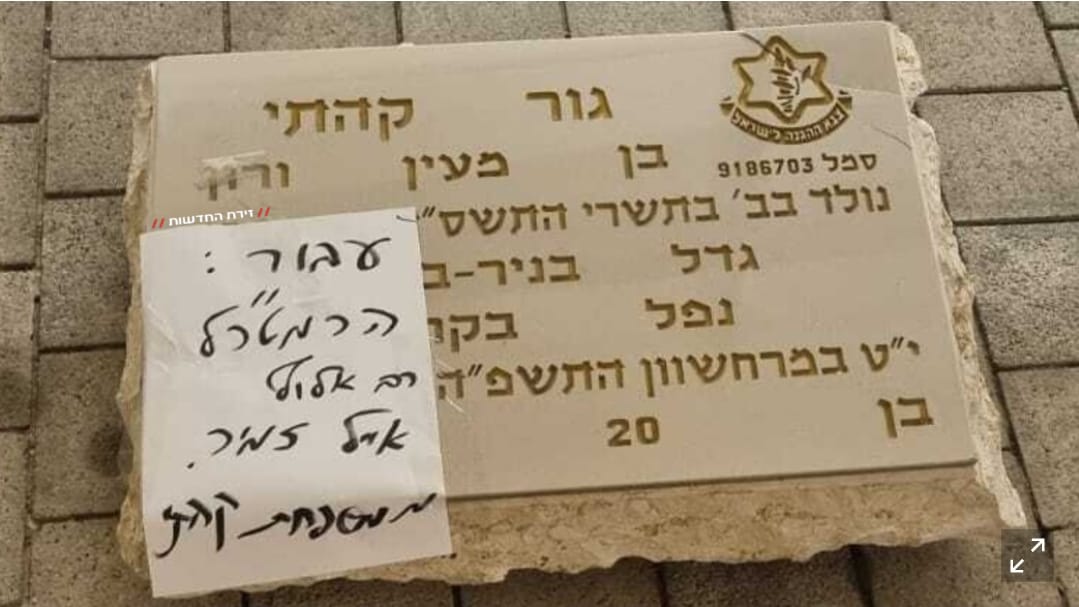 גור קהתי
צבא ההגנה לישראל
סמל 9186703
בן מעין ורון
נולד בב׳ בתשרי התשס״
גדל בניר-ב
נפל בקר
י״ט במרחשוון התשפ״ה
בן 20
// זירת החדשות //
עבור :
הרמטכ״ל
רב אלוף
אייל זמיר.
ממשפחת קהתי